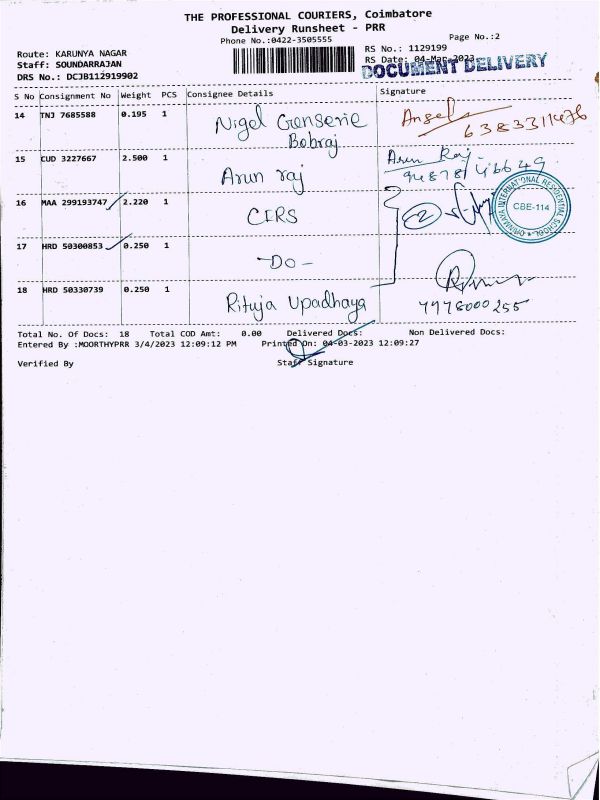 THE PROFESSIONAL COURIERS, Coimbatore
Delivery Runsheet - PRR
Phone No.:0422-3505555
Page No.:2
Route: KARUNYA NAGAR
RS No.: 1129199
Staff: SOUNDARRAJAN
RS Date: 04-Mar-2023
DOCUMENT DELIVERY
DRS No.: DCJB112919902
S No Consignment No Weight PCS Consignee Details Signature
14 TNJ 7685588 0.195 1 Nigel Bobraj Angel
15 CUD 3227667 2.500 1 Arun raj Arun Raj
16 MAA 299193747 2.220 1 CIRS 2
CHINMAYA INTERNATIONAL RESIDENTIAL SCHOOL
CBE-114
17 HRD 50300853 0.250 1 -DO-
18 HRD 50330739 0.250 1 Rituja Upadhaya
Total No. Of Docs: 18 Total COD Amt: 0.00 Delivered Docs: Non Delivered Docs:
Entered By :MOORTHYPRR 3/4/2023 12:09:12 PM Printed On: 04-03-2023 12:09:27
Verified By Staff Signature